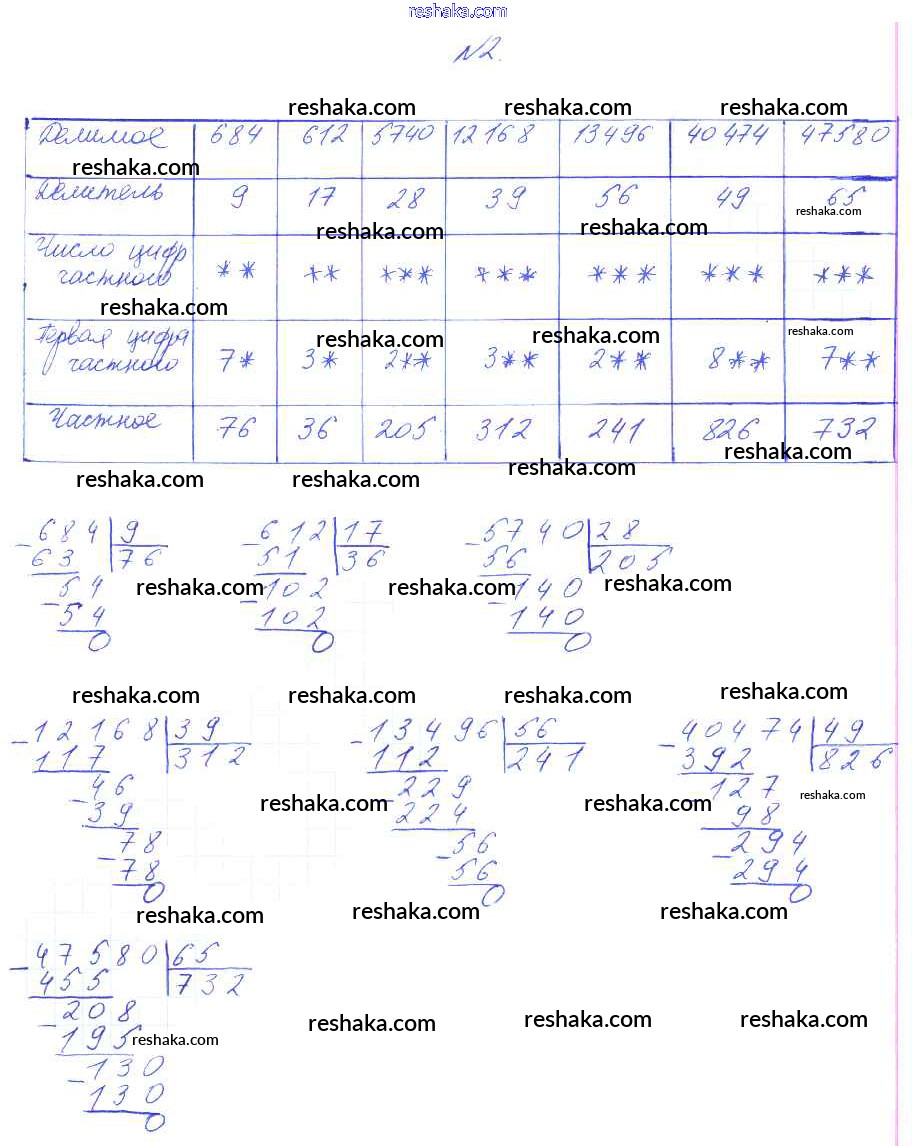 reshaka.com
№2.
reshaka.com reshaka.com reshaka.com
Делимое 684 612 5740 12168 13496 40474 47580
reshaka.com
Делитель 9 17 28 39 56 49 65
reshaka.com
reshaka.com reshaka.com
Число цифр
частного ** ** *** *** *** *** ***
reshaka.com
Первая цифра
reshaka.com reshaka.com reshaka.com
частного 7* 3* 2** 3** 2** 8** 7**
Частное 76 36 205 312 241 826 732
reshaka.com
reshaka.com reshaka.com reshaka.com
-684 9 -612 17 -5740 28
63 76 51 36 56 205
-54 -102 -140
reshaka.com reshaka.com reshaka.com
54 102 140
0 0 0
reshaka.com reshaka.com reshaka.com reshaka.com
-12168 39 -13496 56 -40474 49
117 312 112 241 392 826
-46 -229 -127
reshaka.com reshaka.com reshaka.com
39 224 98
-78 -56 -294
78 56 294
0 0 0
reshaka.com reshaka.com reshaka.com
-47580 65
455 732
-208
reshaka.com reshaka.com reshaka.com
195 reshaka.com
-130
130
0